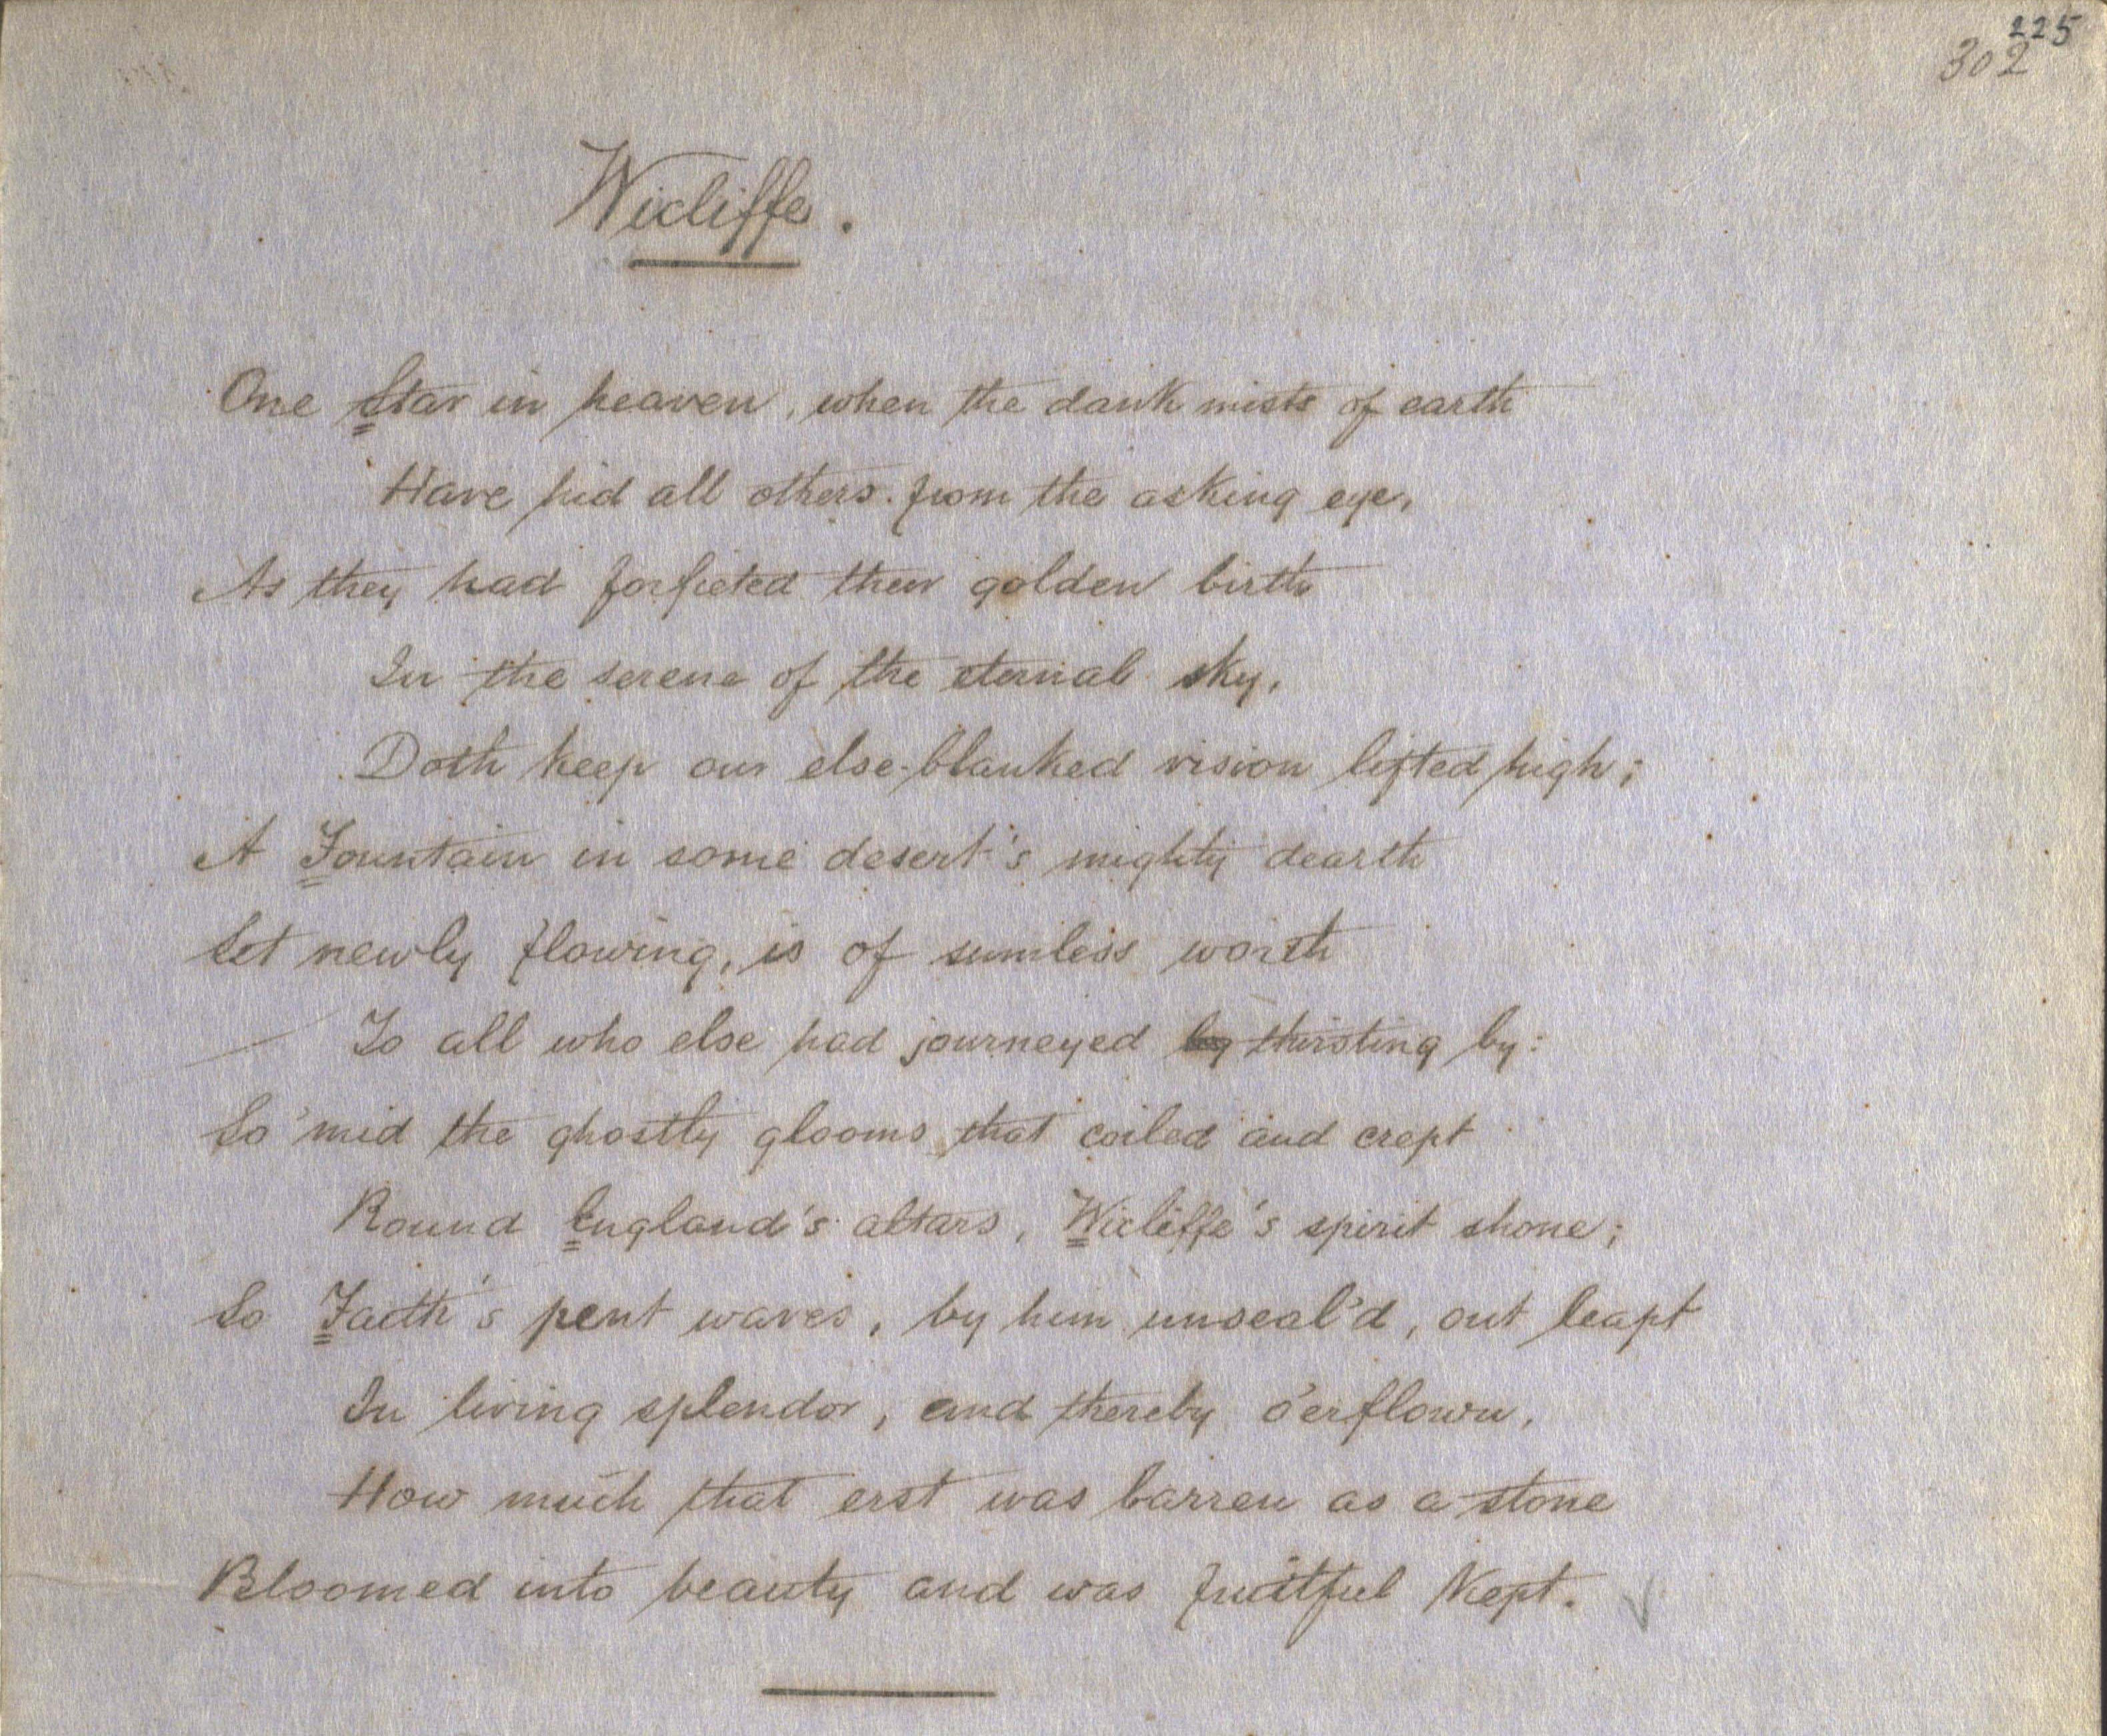 225
302
Wicliffe.
One Star in heaven, when the dank mists of earth
Have hid all others from the asking eye,
As they had forfieted their golden birth
In the serene of the eternal sky,
Doth keep our else-blanked vision lifted high;
A Fountain in some desert's mighty dearth
Set newly flowing, is of sumless worth
To all who else had journeyed by thirsting by:
So 'mid the ghostly glooms that coiled and crept
Round England's altars, Wicliffe's spirit shone;
So Faith's pent waves, by him unseal'd, out leapt
In living splendor, and thereby o'erflown,
How much that erst was barren as a stone
Bloomed into beauty and was fruitful kept.